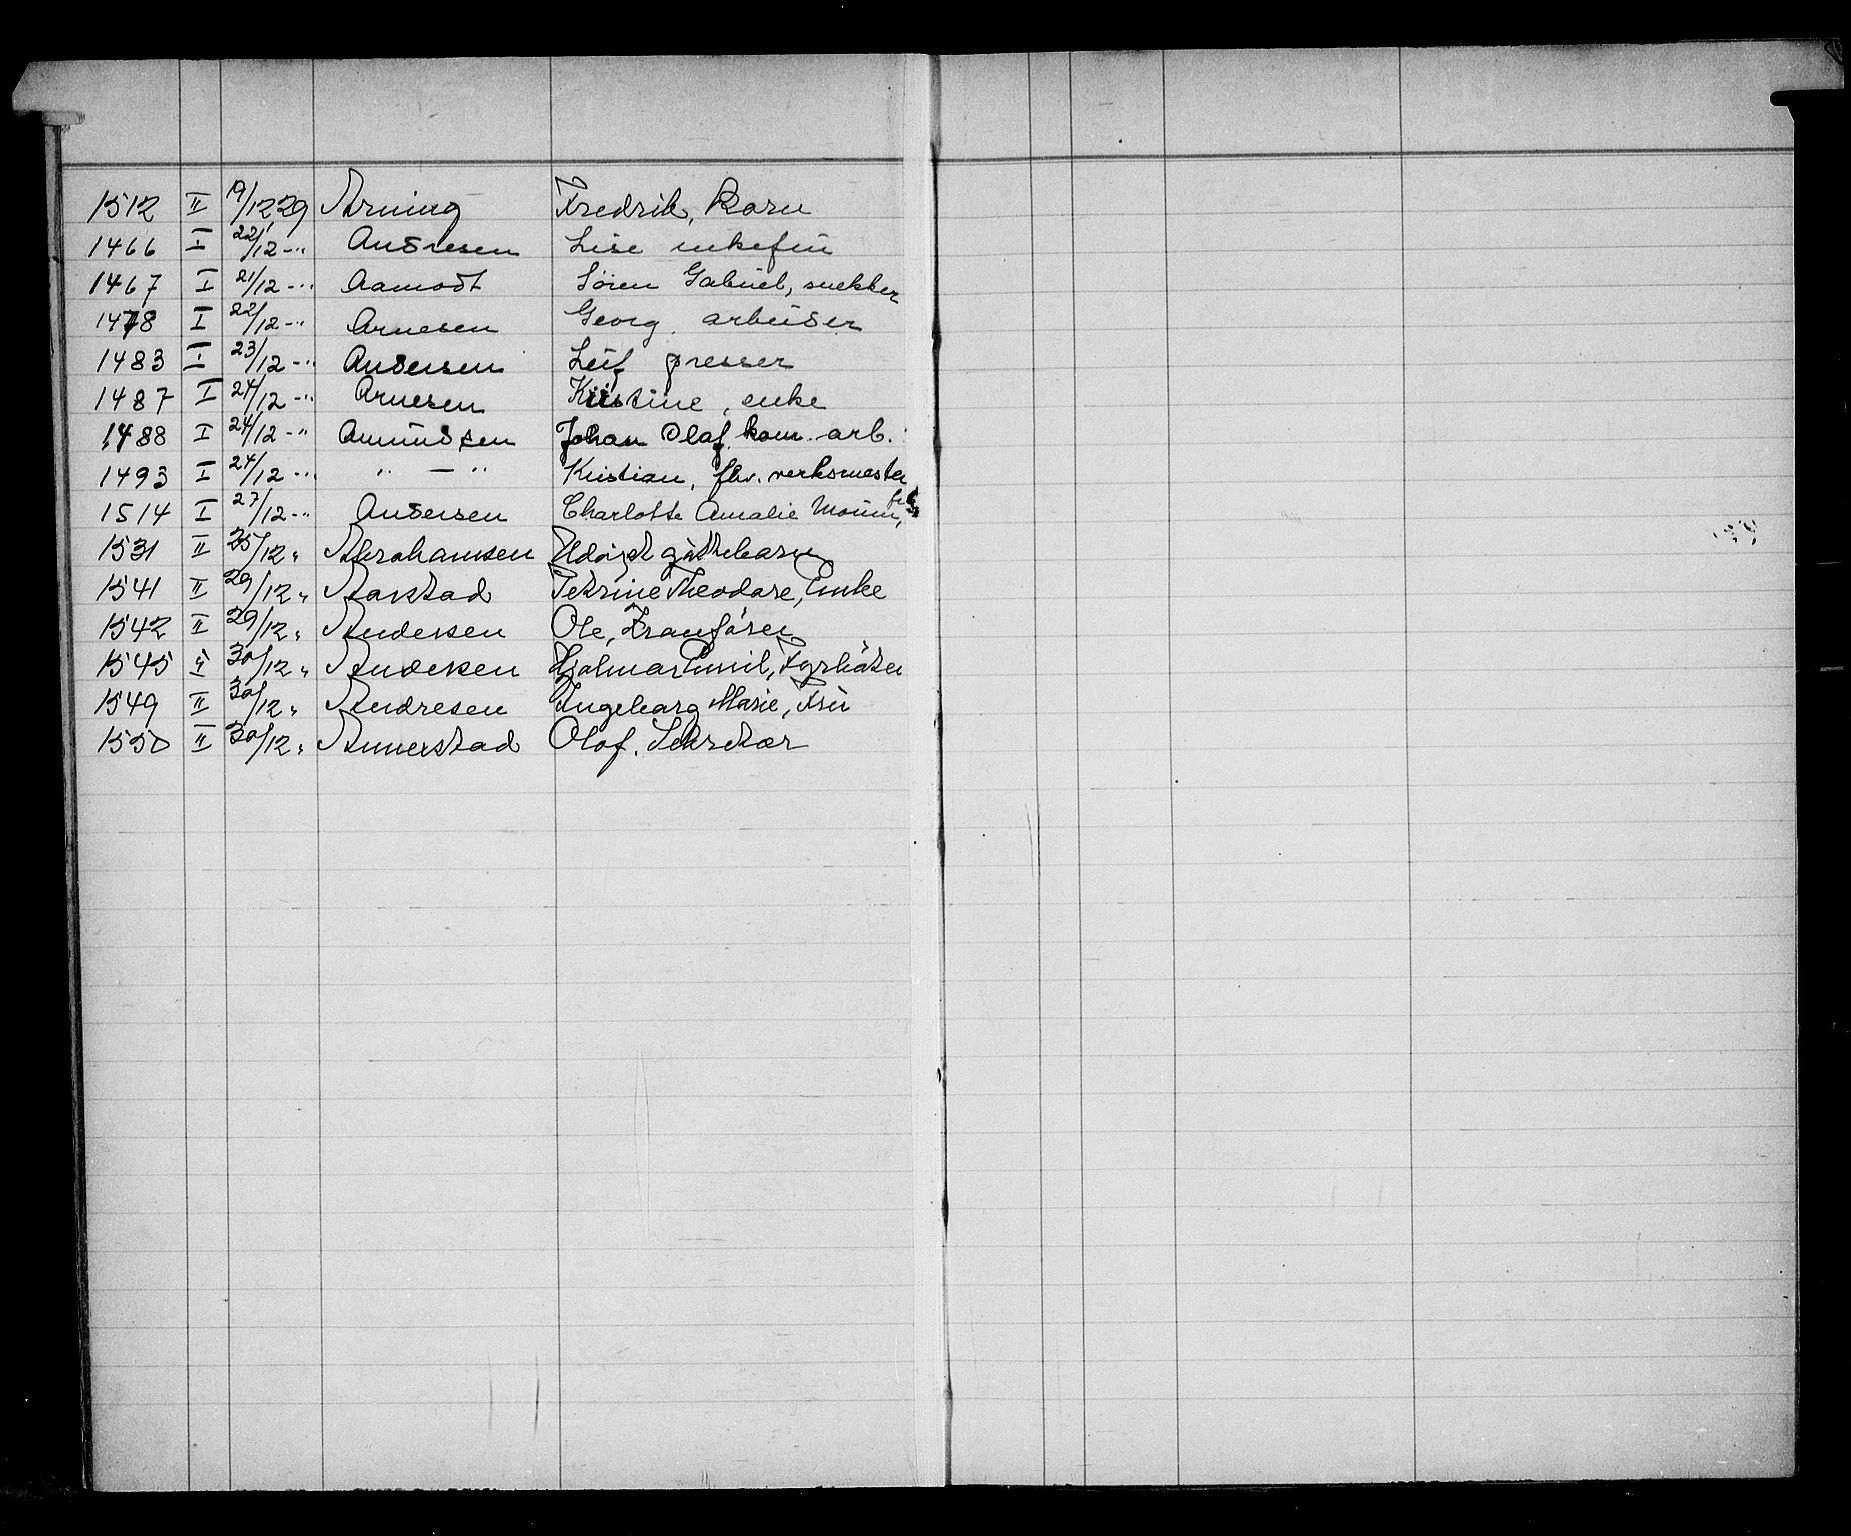 1512 II 19/12 29 Arning Fredrik, Barn
1466 I 22/12 -" Andresen Lise enkefru
1467 I 21/12 -" Aamodt Sören Gabriel, snekker
1478 I 22/12 -" Arnesen Georg. arbeider
1483 I 23/12 -" Andersen Leif presser
1487 I 24/12 -" Arnesen Kristine, enke
1488 I 24/12 -" Amundsen Johan Olaf kom. arb.
1493 I 24/12 -" " — " Kristian, fhv. verksmester
1514 I 27/12 -" Andersen Charlotte Amalie
1531 II 25/12 " Abrahamsen Udøpt guttebarn
1541 II 29/12 " Aarstad Petrine Theodore, Enke
1542 II 29/12 " Andersen Ole,
1545 II 30/12 " Andersen Hjalmar Emil, Fyrbøter
1549 II 30/12 " Andresen Ingeborg Marie, Fru
1550 II 30/12 " Annerstad Olaf. Sekretær